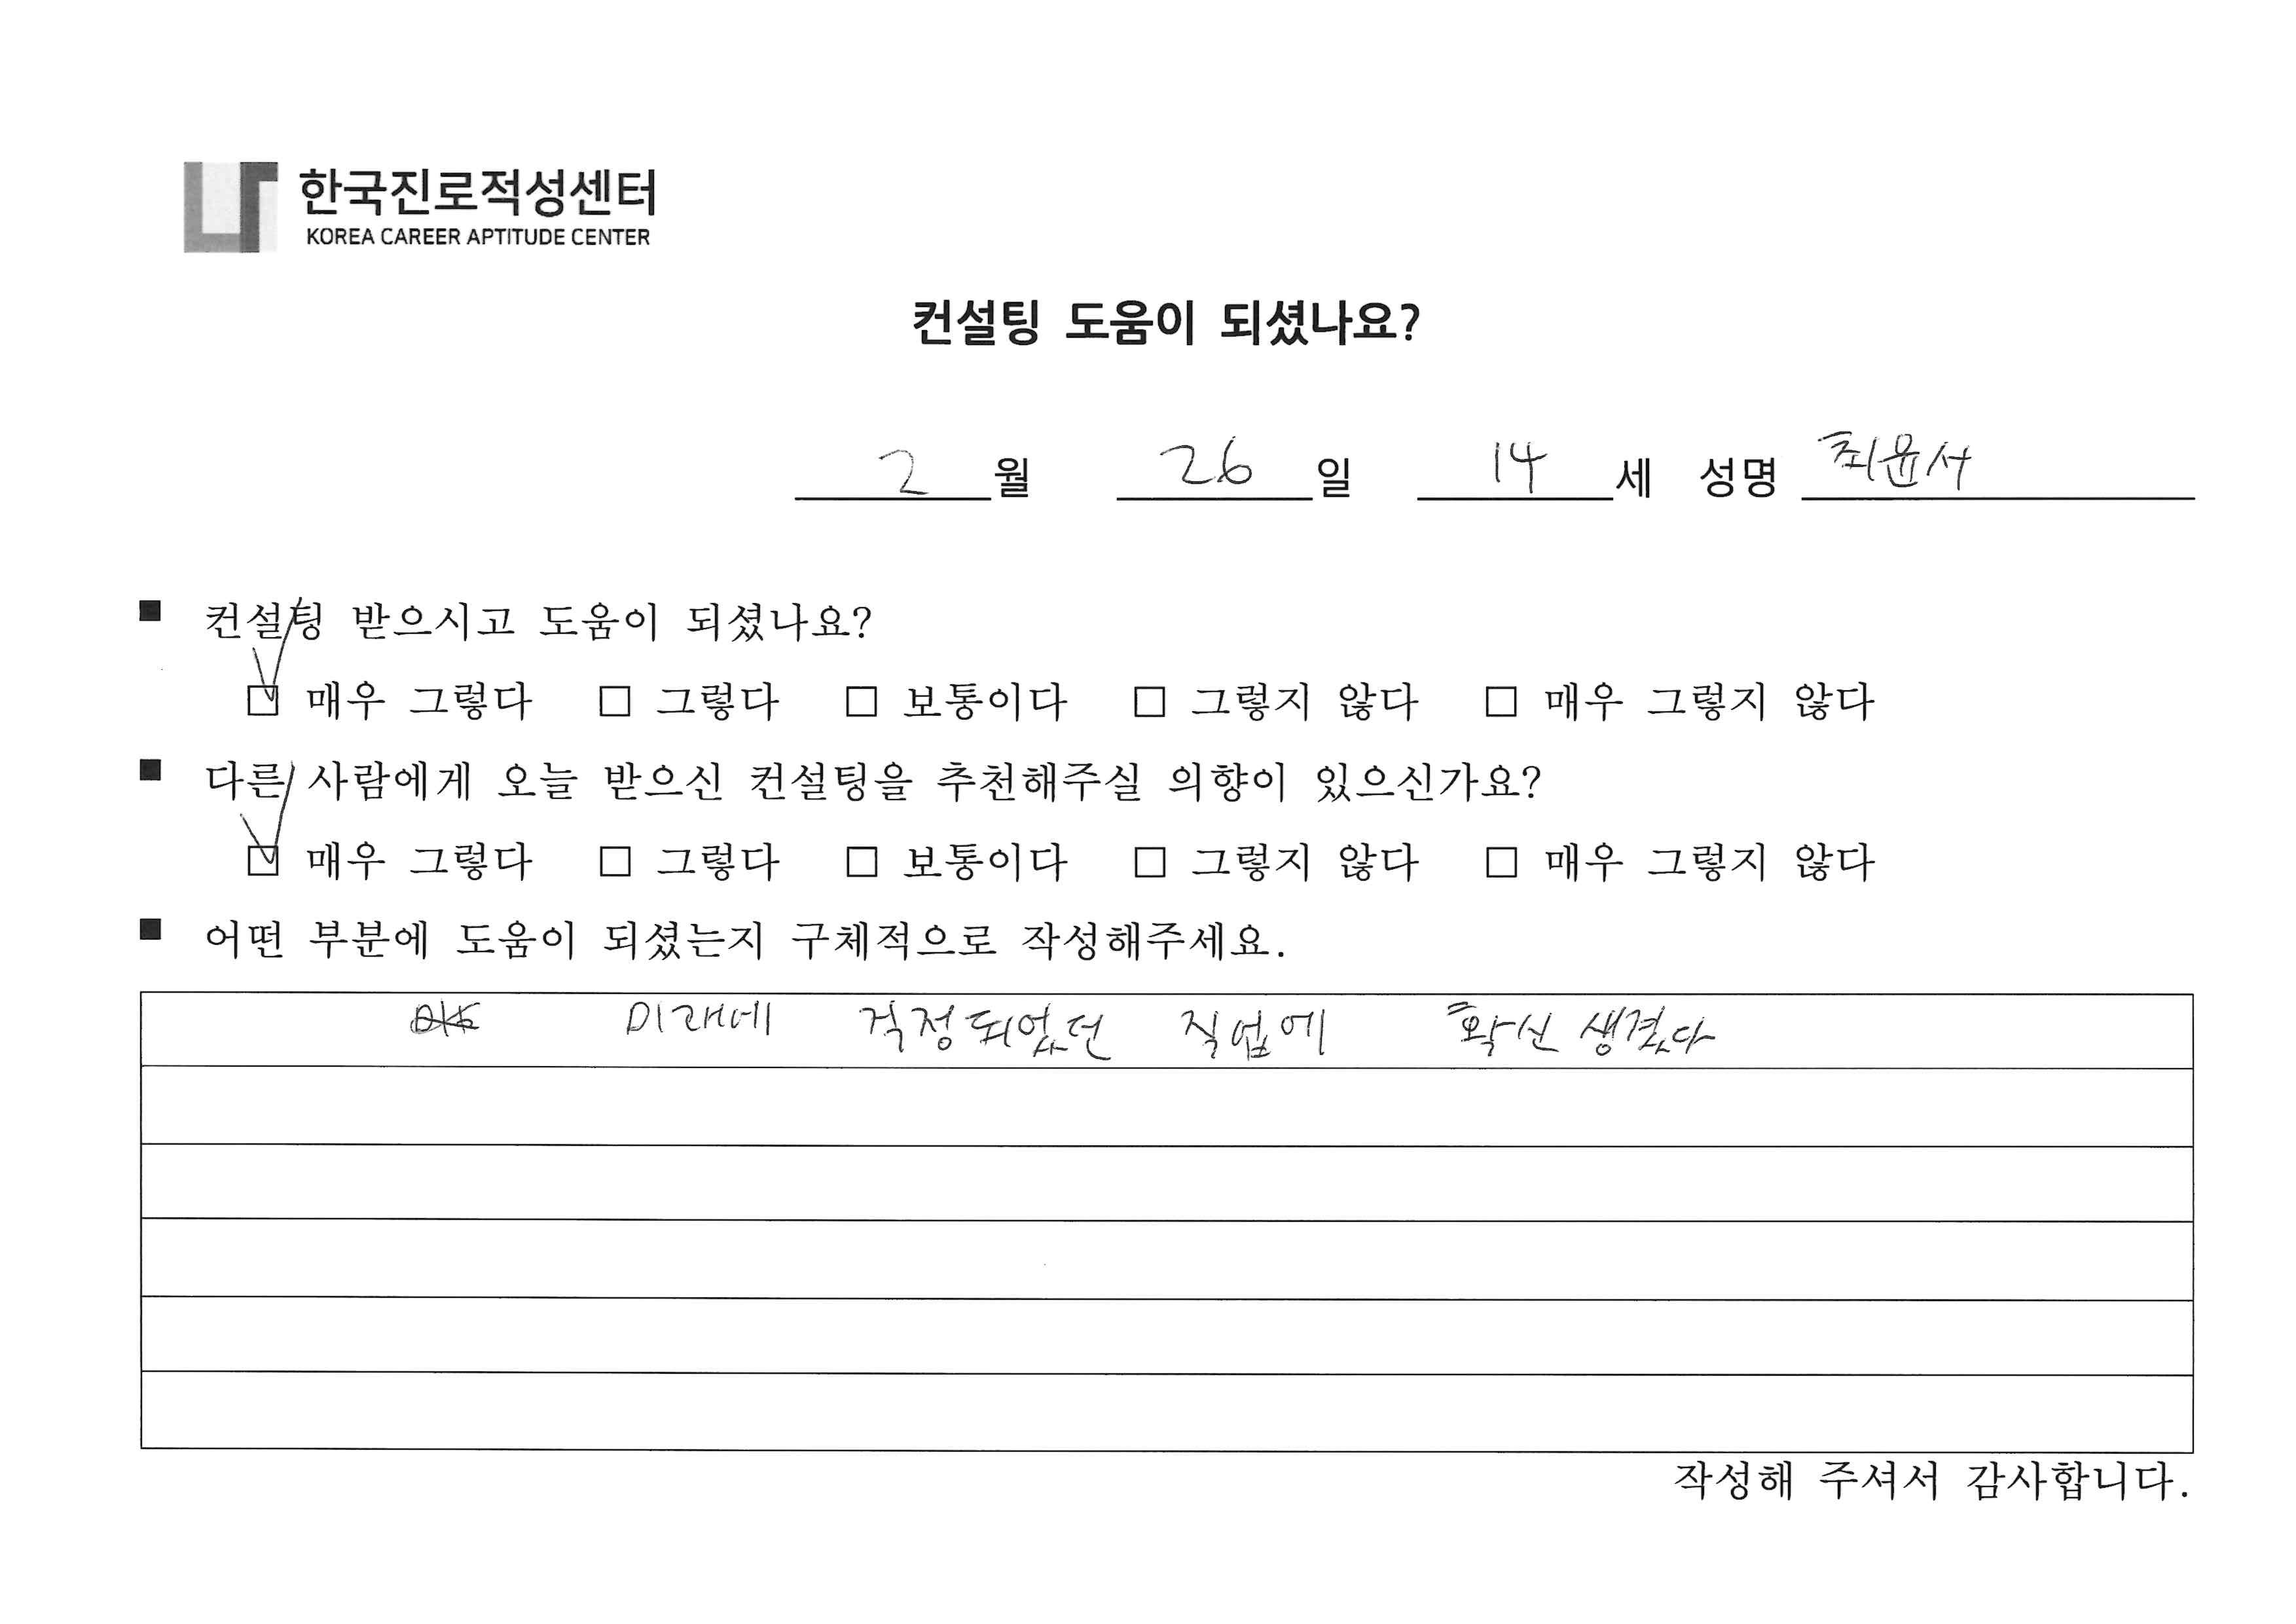 한국진로적성센터
KOREA CAREER APTITUDE CENTER
컨설팅 도움이 되셨나요?
2 월 26 일 14 세 성명 최윤서
■ 컨설팅 받으시고 도움이 되셨나요?
☑ 매우 그렇다 □ 그렇다 □ 보통이다 □ 그렇지 않다 □ 매우 그렇지 않다
■ 다른 사람에게 오늘 받으신 컨설팅을 추천해주실 의향이 있으신가요?
☑ 매우 그렇다 □ 그렇다 □ 보통이다 □ 그렇지 않다 □ 매우 그렇지 않다
■ 어떤 부분에 도움이 되셨는지 구체적으로 작성해주세요.
미래에 걱정되었던 직업에 확신 생겼다
작성해 주셔서 감사합니다.